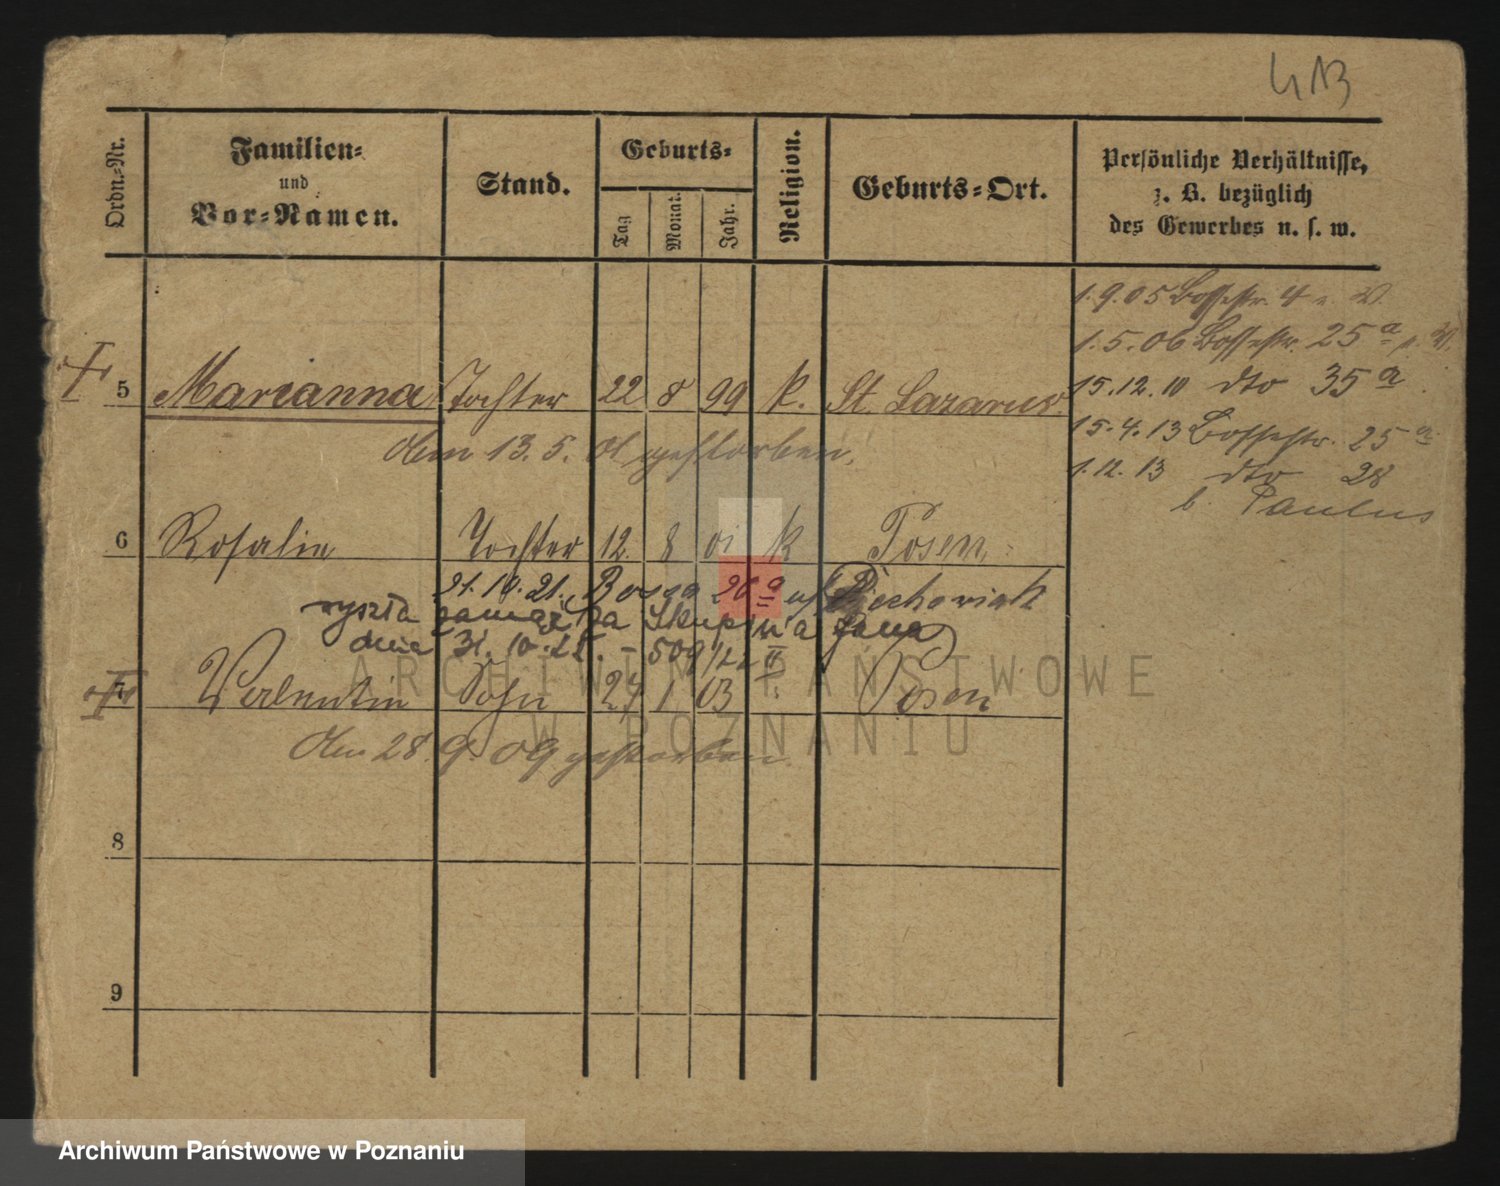 413
Ordn.-Nr.
Familien-
und
Vor-Namen.
Stand.
Geburts-
Tag
Monat.
Jahr.
Religion.
Geburts-Ort.
Persönliche Verhältnisse,
z. B. bezüglich
des Gewerbes u. s. w.
1.9.05 Bossestr. 4
1.5.06 Bossestr. 25a
15.12.10 dto 35a
15.4.13 Bossestr. 25a
1.12.13 dto 28
b. Paulus
5 Marianna Tochter 22 8 99 k. St. Lazarus
am 13.5.01 gestorben.
6 Rosalie Tochter 12. 8 01 k Posen
21.10.21. Bossa 26a
wyszła zamąż za Skupina Jana
dnia 31.10.22. - 509/22 II
7 Valentin Sohn 24 1 03 Posen
Am 28.9.09 gestorben.
8
9
ARCHIWUM PAŃSTWOWE
W POZNANIU
Archiwum Państwowe w Poznaniu